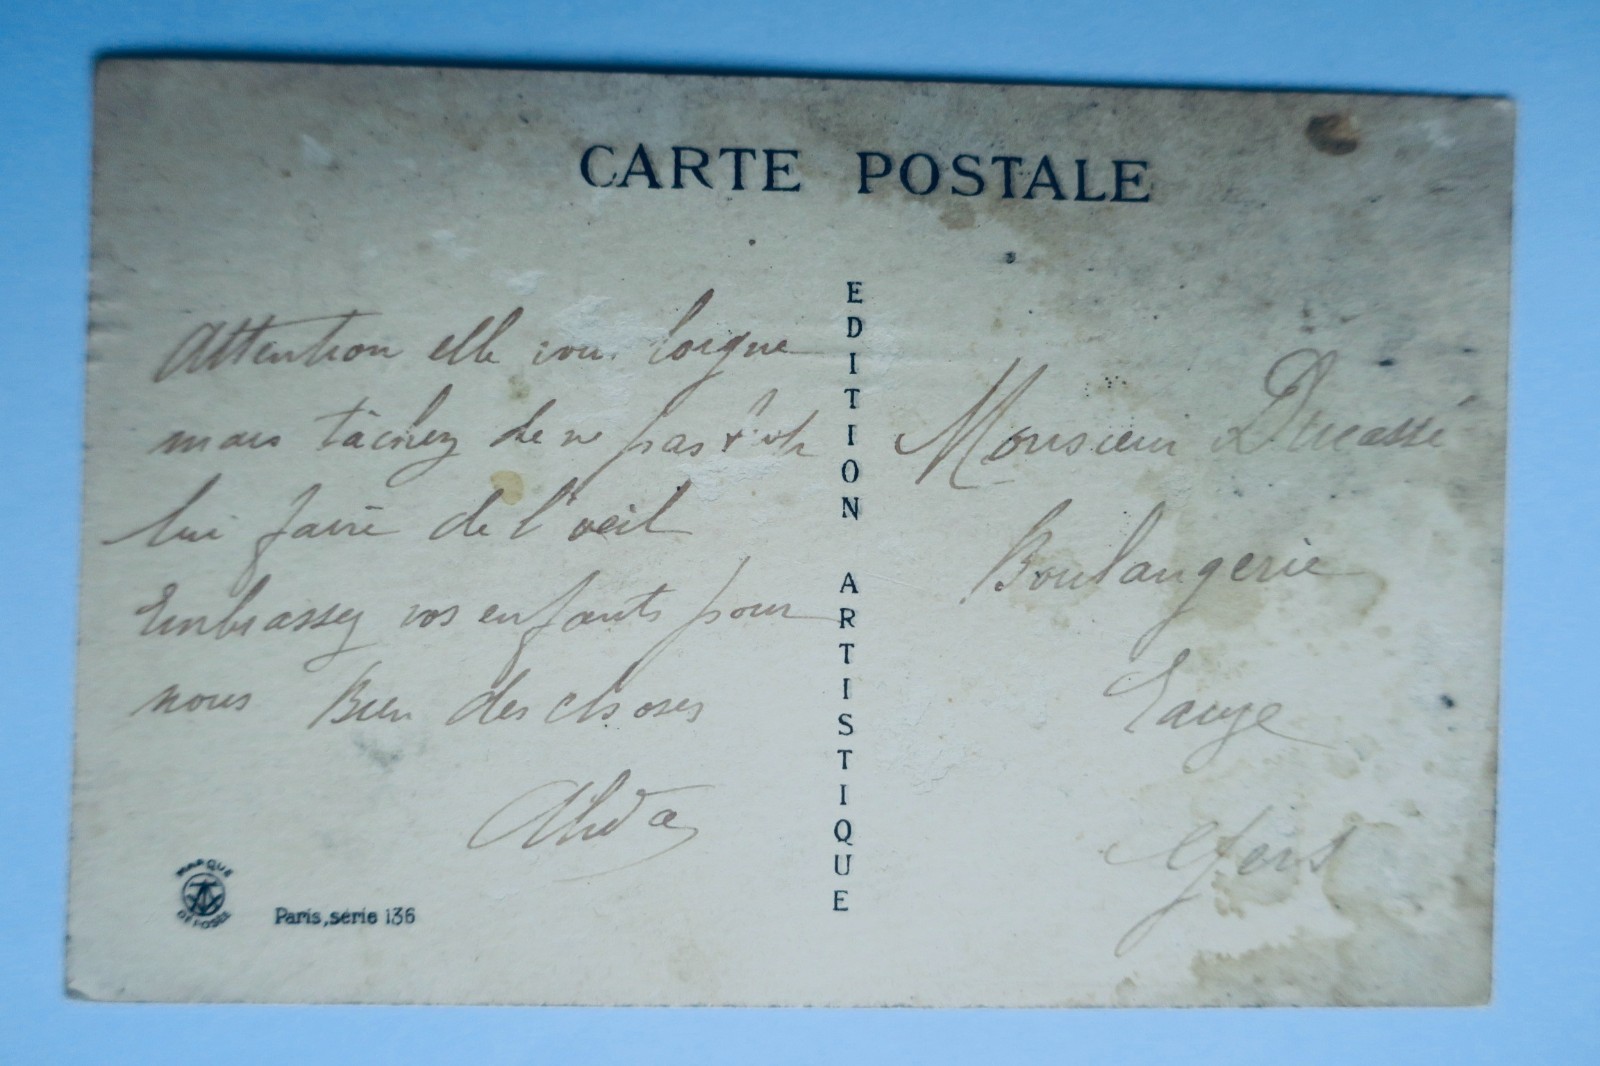 CARTE POSTALE
Attention elle vous lorgne
mais tâchez de ne pas
lui faire de l'oeil
Embrassez vos enfants pour
nous Bien des choses
Alida
EDITION ARTISTIQUE
Monsieur Ducassé
Boulangerie
Eauze
Gers
MARQUE DÉPOSÉE
Paris, série 136